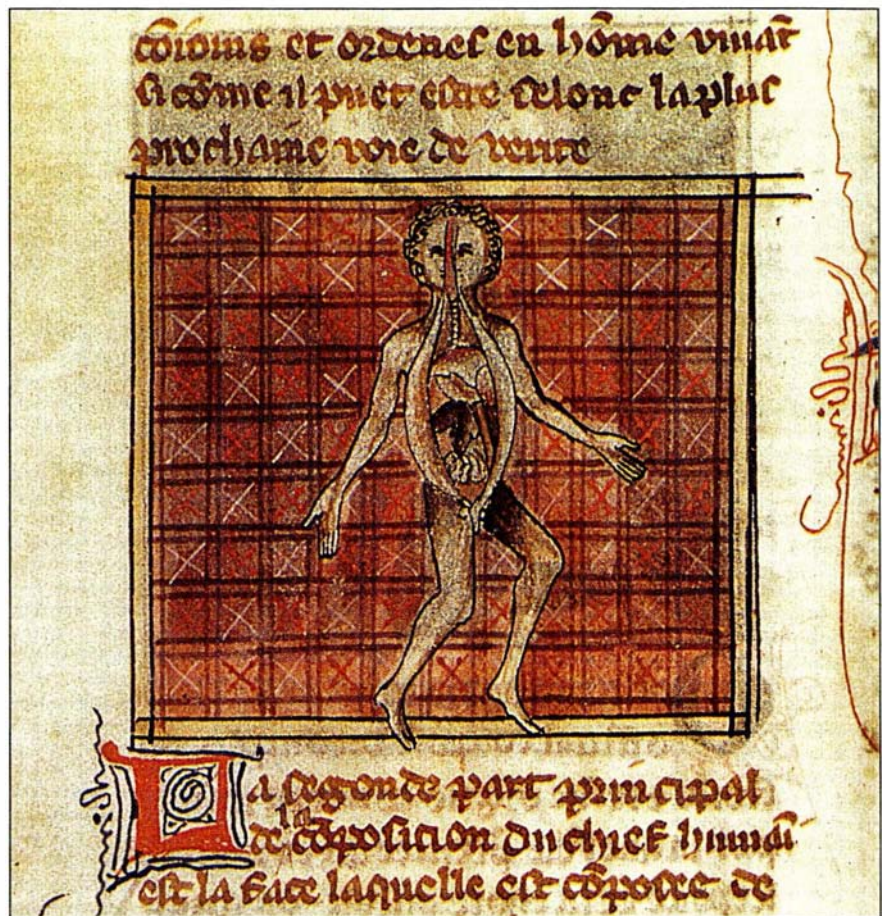 cōioins et ordenes en hōme viuāt
si cōme il puet estre selonc la plus
prochaine voie de verite
La segonde part principal
de la cōposicion du chief humāi
est la face laquelle est cōposee de